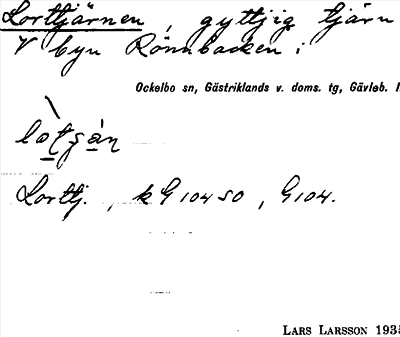 Lorttjärnen, gyttjig tjärn
V byn Rönnbacken i
Ockelbo sn, Gästriklands v. doms. tg, Gävleb.
Lorttj., kG 104 SO, G 104.
LARS LARSSON 1935